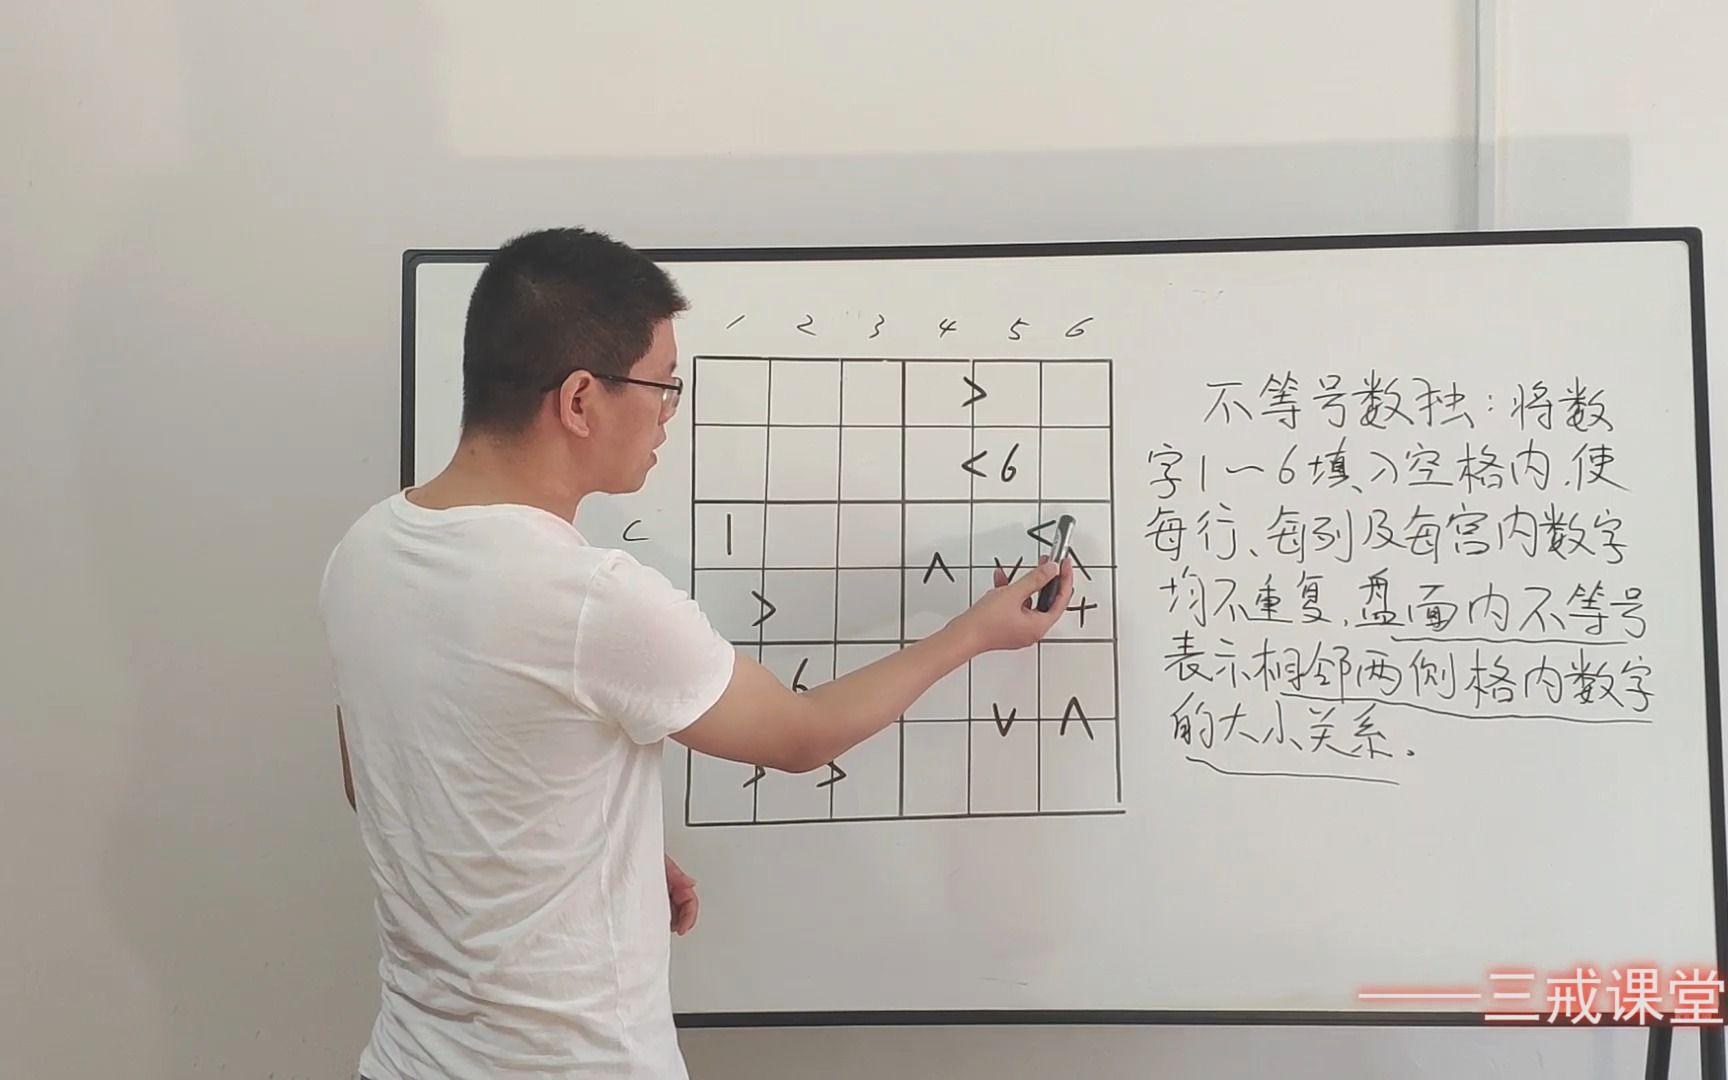 1 2 3 4 5 6
>
< 6
C 1 <
∧ ∨ ∧
> 4
6
∨ ∧
> >
不等号数独:将数
字1~6填入空格内,使
每行、每列及每宫内数字
均不重复,盘面内不等号
表示相邻两侧格内数字
的大小关系。
——三戒课堂